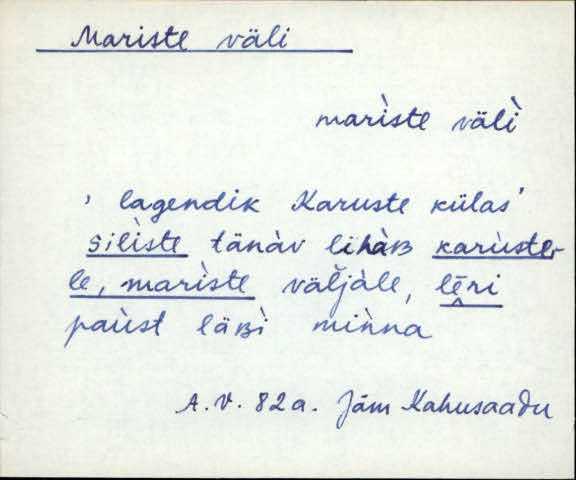 Mariste väli
marìste välì
' lagendik Karuste külas'
silìste tänàv lìhàʙ karùste-
le, marìste väljàle, lēri
paùst läʙì minna
A.V. 82a. Jäm Kahusaadu